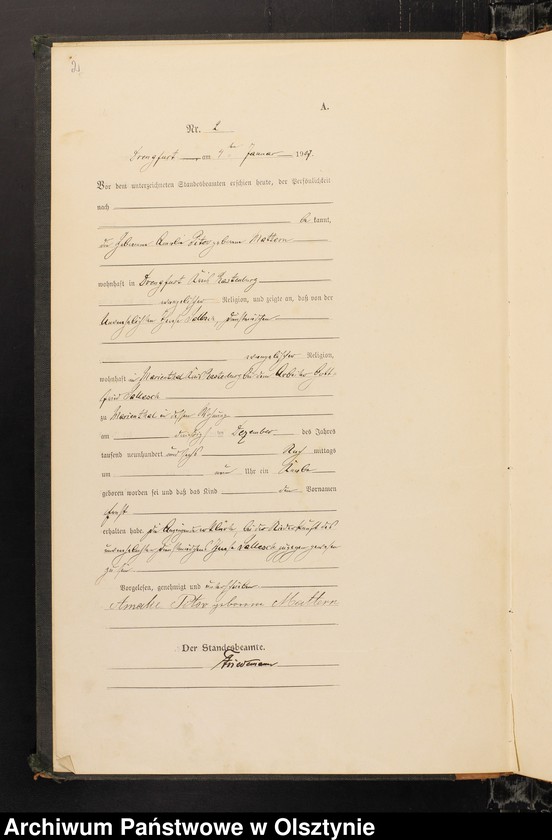 2
A.
Nr. 2
Drengfurt am 4ten Januar 1907.
Vor dem unterzeichneten Standesbeamten erschien heute, der Persönlichkeit
nach
be kannt,
die Hebamme Amalie Petor geborene Mattern
wohnhaft in Drengfurt Kreis Rastenburg
evangelischer Religion, und zeigte an, daß von der
unverehelichten Dienstmädchen
evangelischer Religion,
wohnhaft in Marienthal Kreis Rastenburg bei dem Arbeiter Gott-
fried
zu Marienthal in dessen Wohnung
am Dezember des Jahres
tausend neunhundert und sechs Nach mittags
um neun Uhr ein Knabe
geboren worden sei und daß das Kind den Vornamen
erhalten habe. Die Anzeigende erklärte, bei der Niederkunft der
unverehelichten zugegen gewesen
zu sein
Vorgelesen, genehmigt und unterschrieben
Amalie Petor geborene Mattern
Der Standesbeamte.
Friedemann
Archiwum Państwowe w Olsztynie